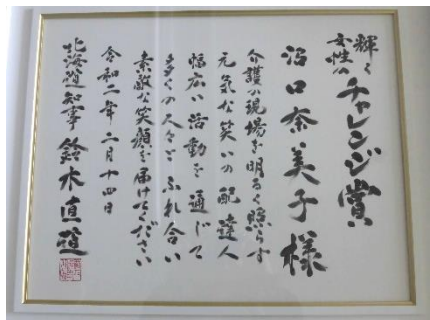 輝く
女性の
チャレンジ賞
沼口奈美子様
介護の現場を明るく照らす
元気な笑いの配達人
幅広い活動を通じて
多くの人々とふれ合い
素敵な笑顔を届けてください
令和二年二月十四日
北海道知事 鈴木直道